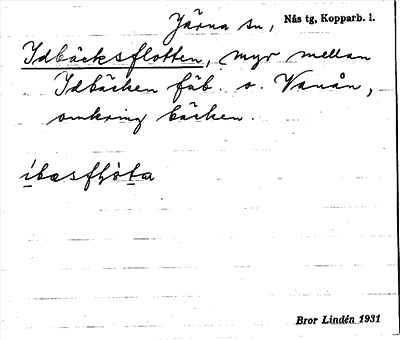 Järna sn, Nås tg, Kopparb. l.
Idbäcksflotten, myr mellan
Idbäcken fäb. o. Vanån,
omkring bäcken.
ibæsflòta
Bror Lindén 1931